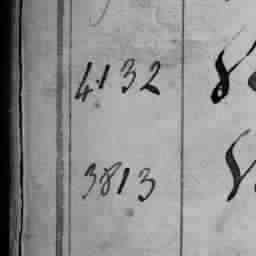 4132
3813